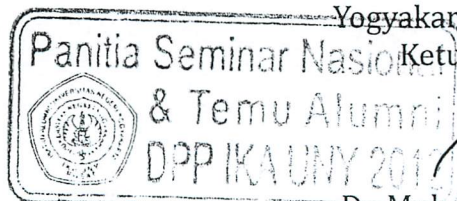 Yogyakar
Ketu
Panitia Seminar Nasional
& Temu Alumni
DPP IKA UNY